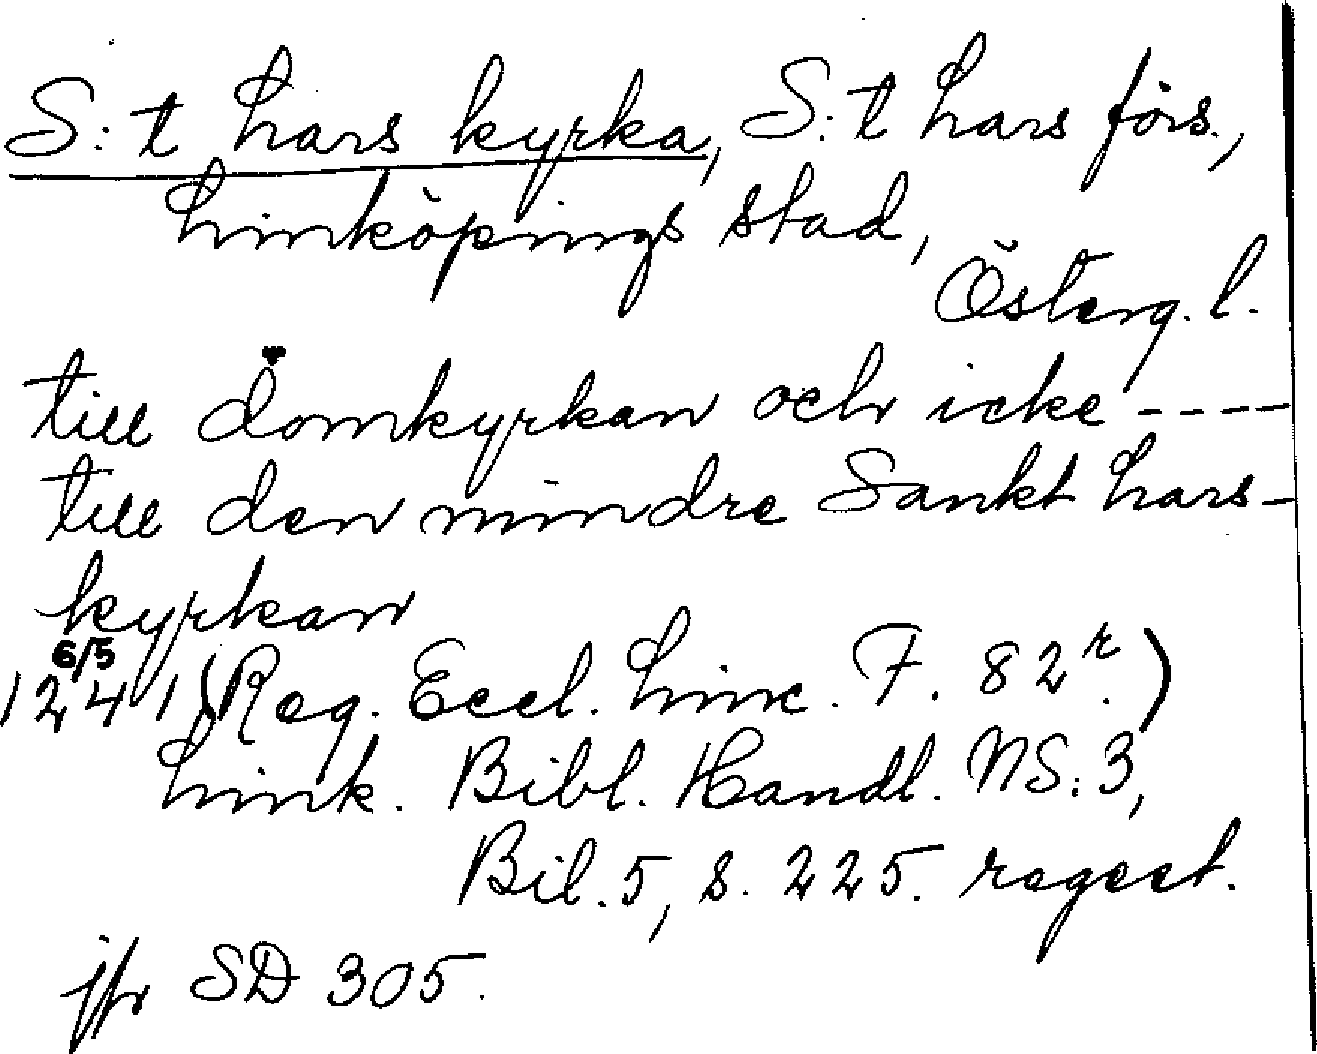 S:t Lars kyrka, S:t Lars förs.,
Linköpings stad,
Österg. l.
till domkyrkan och icke ----
till den mindre Sankt Lars-
kyrkan
6/5
1241 (Reg. Eccl. Linc. F. 82r.)
Link. Bibl. Handl. NS:3,
Bil. 5, s. 225. regest.
jfr SD 305.